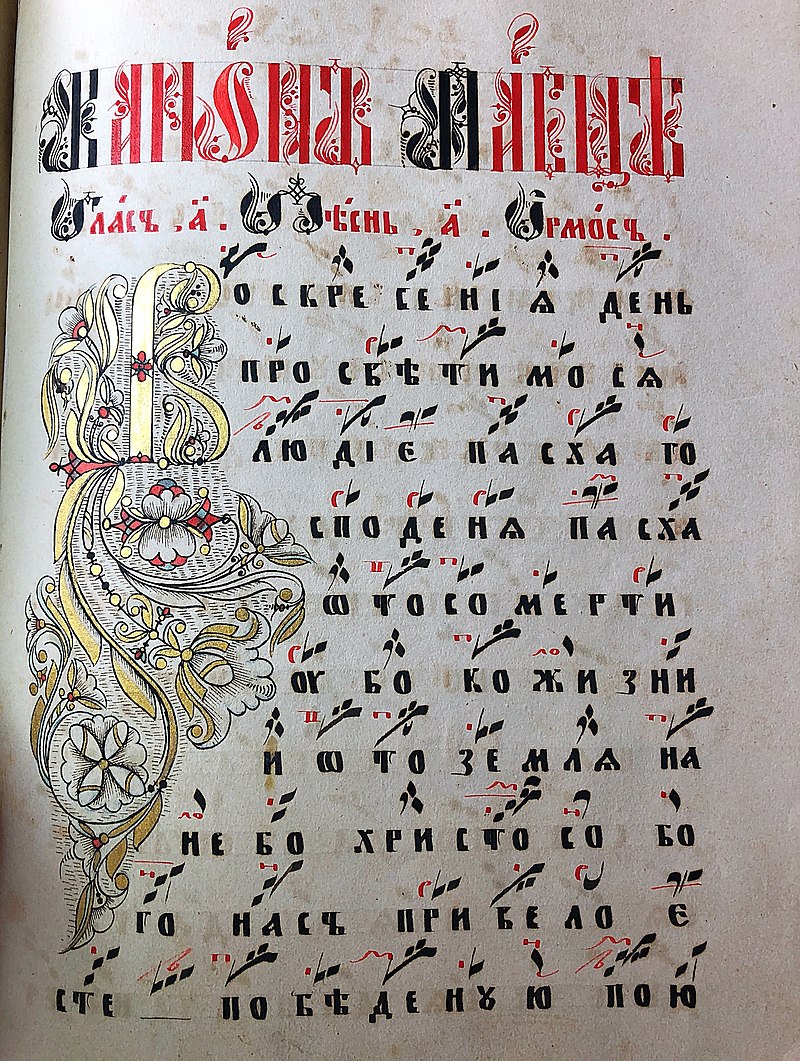 Кано́нъ па́сцѣ
Гла́съ, а҃. Пѣ́снь, а҃. Ірмо́съ.
Воскресеніѧ день
просвѣтимосѧ
людіе пасха го
споденѧ пасха
ѡтосомерти
оубо кожизни
и ѡто землѧ на
небо христосо бо
го насъ привело е
сте побѣденꙋю пою